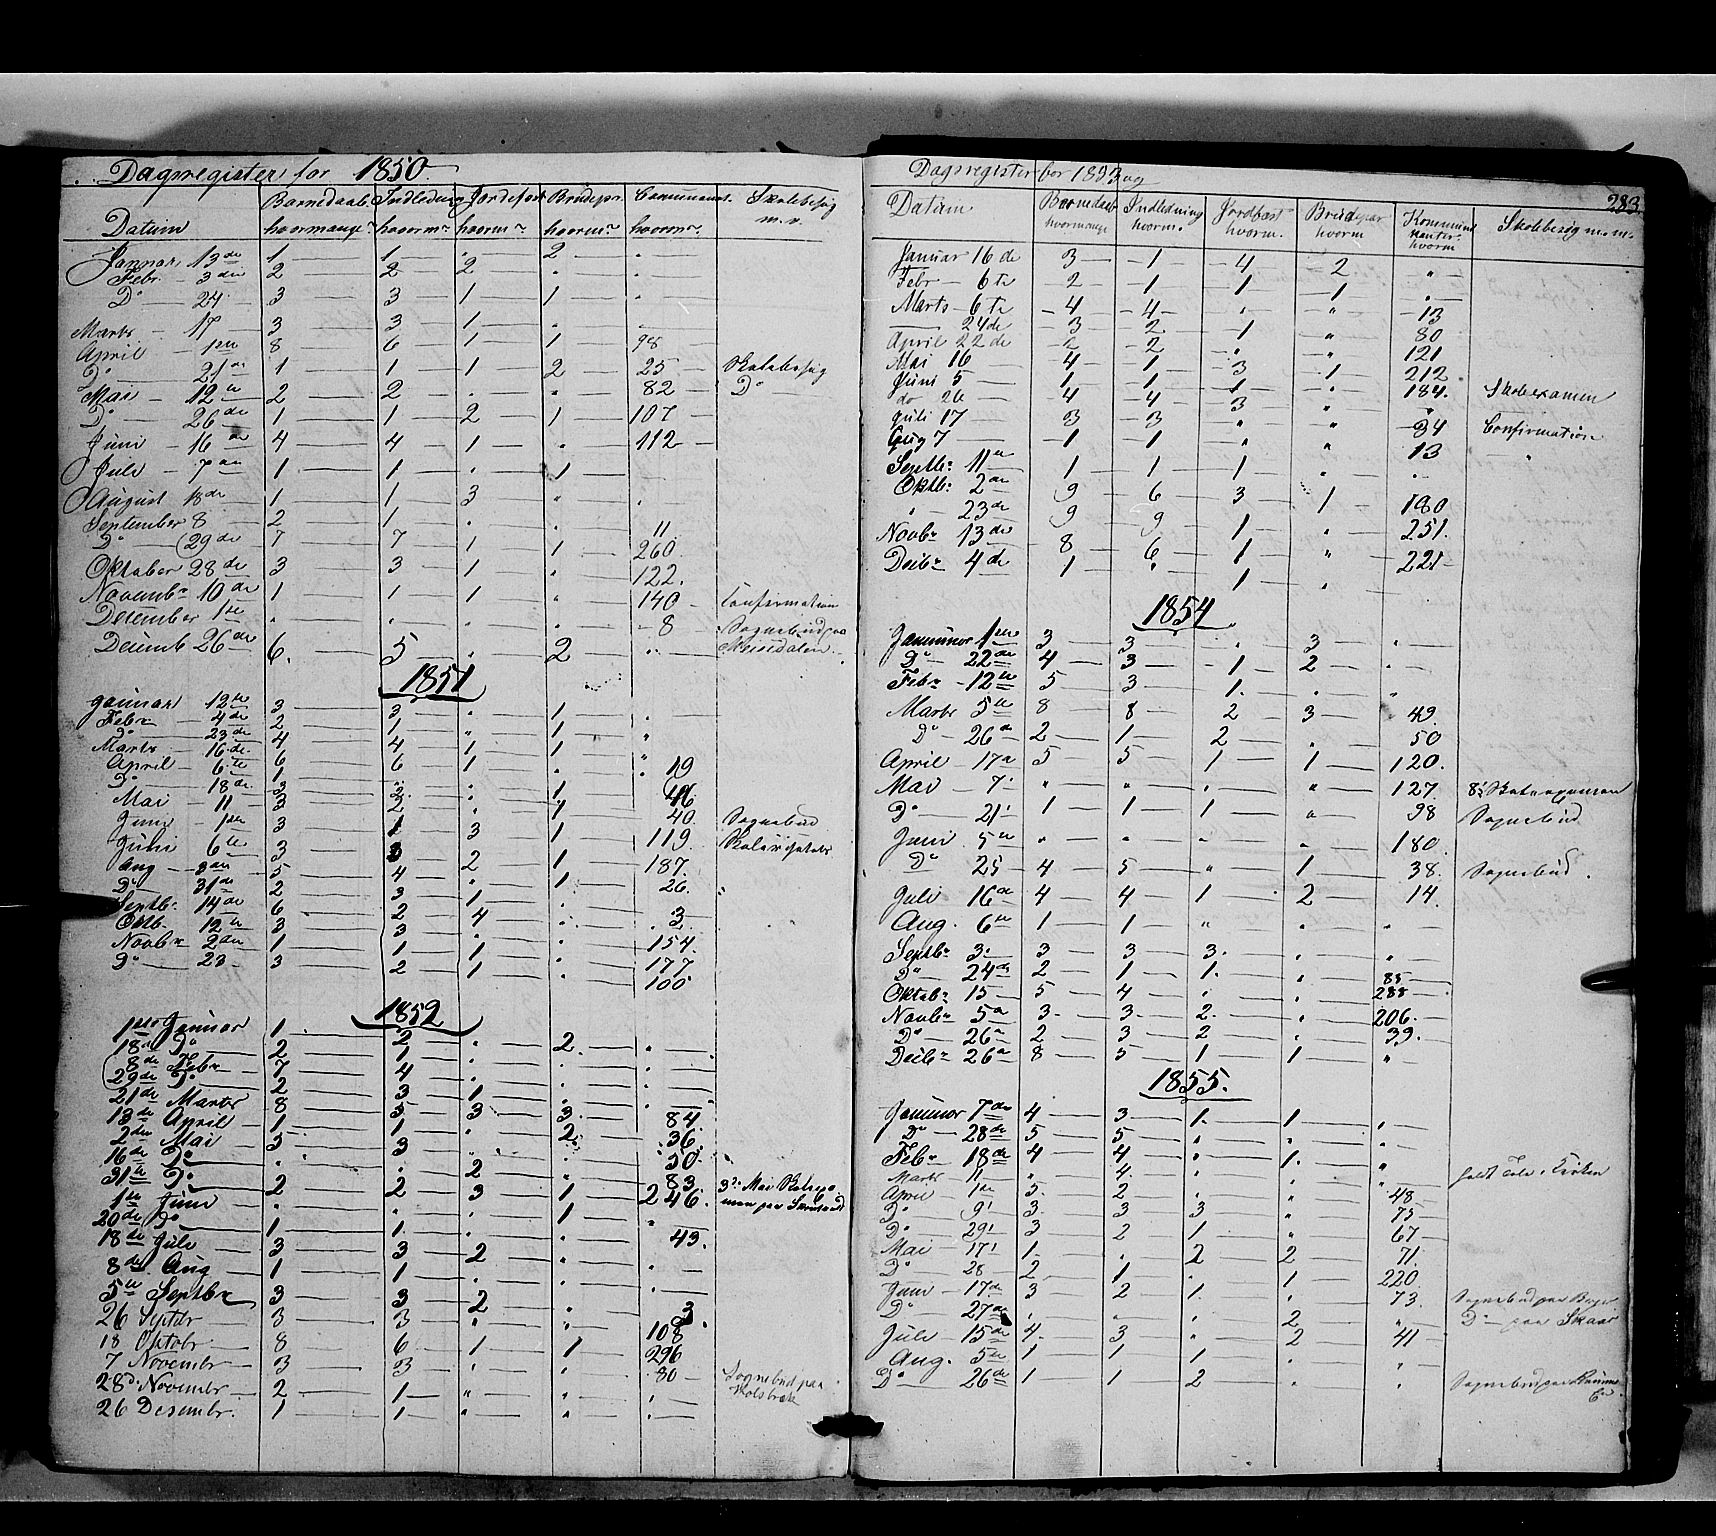 Dagsregister for 1850.
Datum Barnedaab hvormange Indledning hvorm. Jordefæst hvorm. Brudepr. hvorm. Communic. hvorm. Skolebesøg m.v.
Januar 13de 1 1 " 2 "
Febr. 3die 2 2 2 "
D° 24 3 3 1 1 "
Marts 17 3 3 1 " "
April 1ste 8 6 1 1 98
D° 21de 1 1 1 2 25 Skolebesøg
Mai 12te 2 2 " " 82 D°
D° 26de 1 1 2 1 107
Juni 16de 4 4 1 " 112
Juli 7de 1 1 " 1 "
August 18de 1 1 3 " "
September 8 2 1 " " 11
D° 29de 7 7 1 1 260
Oktober 28de 3 3 1 " 122
Novembr 10de 1 1 1 " 140 Confirmation
December 1ste " " " " 8 Sognebud paa
Decemb 26de 6 5 " 2
1851
Januar 12te 3 3 " 1 "
Febr 4de 2 1 " 1 "
D° 23de 4 4 1 1 "
Marts 16de 6 6 1 " 19
April 6te 1
D° 18de 3 2 " 1 46
Mai 11 3 2 " 1 40 Sognebud
Juni 1ste 3 1 3 1 119
Juli 6te 3 3 2 1 187
Aug 3die 5 4 " 1 26
D° 31de 2 3 1 "
Septbr. 14de 6 2 4 " 3
Oktb. 12te 3 3 " " 154
Novbr 2den 1 1 1 " 177
D° 23 3 2 1 " 100
1852
1ste Januar 1 2 " 2 "
18de D° 2 1 " " "
8de Febr 7 4 " " "
29de D° 2 3 1 " "
21de Marts 8 5 3 3 84
13de April 1 1 " 2 36
2den Mai 3 3 " " 50
16de D° " " 2 " 83
31te D° 2 2 3 1 246 3die Mai
1ste Juni " " " 1 "
20de D° 1 1 " " 43
18de Juli 3 3 2 " "
8de Aug 1 1 " " "
5te Septbr 3 3 2 " 3
26 Septbr 3 3 " " 108
18 Oktobr 8 6 1 1 296
7 Novembr 3 3 " " 80 Sognebud paa
28d. Novembr 2 1 " " " Holsbræk
26 Desembr. 1 1 " " "
Dagsregister for 1853 og
283
Datum Barnedaab hvormange Indledning hvorm. Jordfæst hvorm. Brudepar hvorm Kommunikanter hvorm Skolebesøg m.m.
Januar 16de 3 1 4 2 "
Febr 6te 2 1 1 1 "
Marts 6te 4 4 " " 13
24de 3 2 1 " 80
April 22de 2 2 " " 121
Mai 16 4 1 3 1 212
Juni 5 1 1 1 " 184 Skoleexamen
do 26 4 4 3 " "
Juli 17 3 3 " " 34 Confirmation
Aug 7 1 1 " " 13
Septbr 11te 1 1 1 " "
Oktbr 2den 9 6 3 1 180
" 23de 9 9 1 " 251
Novbr 13de 8 6 1 " 221
Decbr 4de 1 " 1 "
1854
Januar 1ste 3 3 " 3 "
D° 22de 4 3 1 2 "
Febr 12te 5 3 1 " "
Marts 5te 8 8 2 3 49
D° 26de 2 1 2 " 50
April 17de 5 5 1 1 120
Mai 7 " " " " 127 8de Skoleexamen
D° 21 1 1 1 " 98 Sognebud
Juni 5te " " " " 180
D° 25 4 5 " 1 38 Sognebud.
Juli 16de 4 4 1 2 14
Aug. 6te 1 1 " " "
Septbr 3 3 3 3 " "
D° 24de 2 1 1 " 85
Oktobr 15 5 4 " " 288
Novbr 5te 3 3 2 " 206
D° 26de 2 3 2 " 39
Decbr 26de 8 5 1 1 "
1855.
Januar 7de 4 3 1 1 "
D° 28de 5 5 " " "
Febr 18de 4 4 " 1 "
Marts 11 " 4 " "
April 1ste 5 2 " " 48
D° 9 3 3 3 " 75
D° 29 3 2 1 " 67
Mai 17 1 " 2 2 71
D° 28 2 1 " 1 220
Juni 17de 3 2 1 " 73 Sognebud paa
D° 27de " " " 2 " D° paa Skaar
Juli 15de 4 3 " 2 41
Aug. 5te 1 1 1 " "
D° 26de 1 1 2 " " Sognebud paa